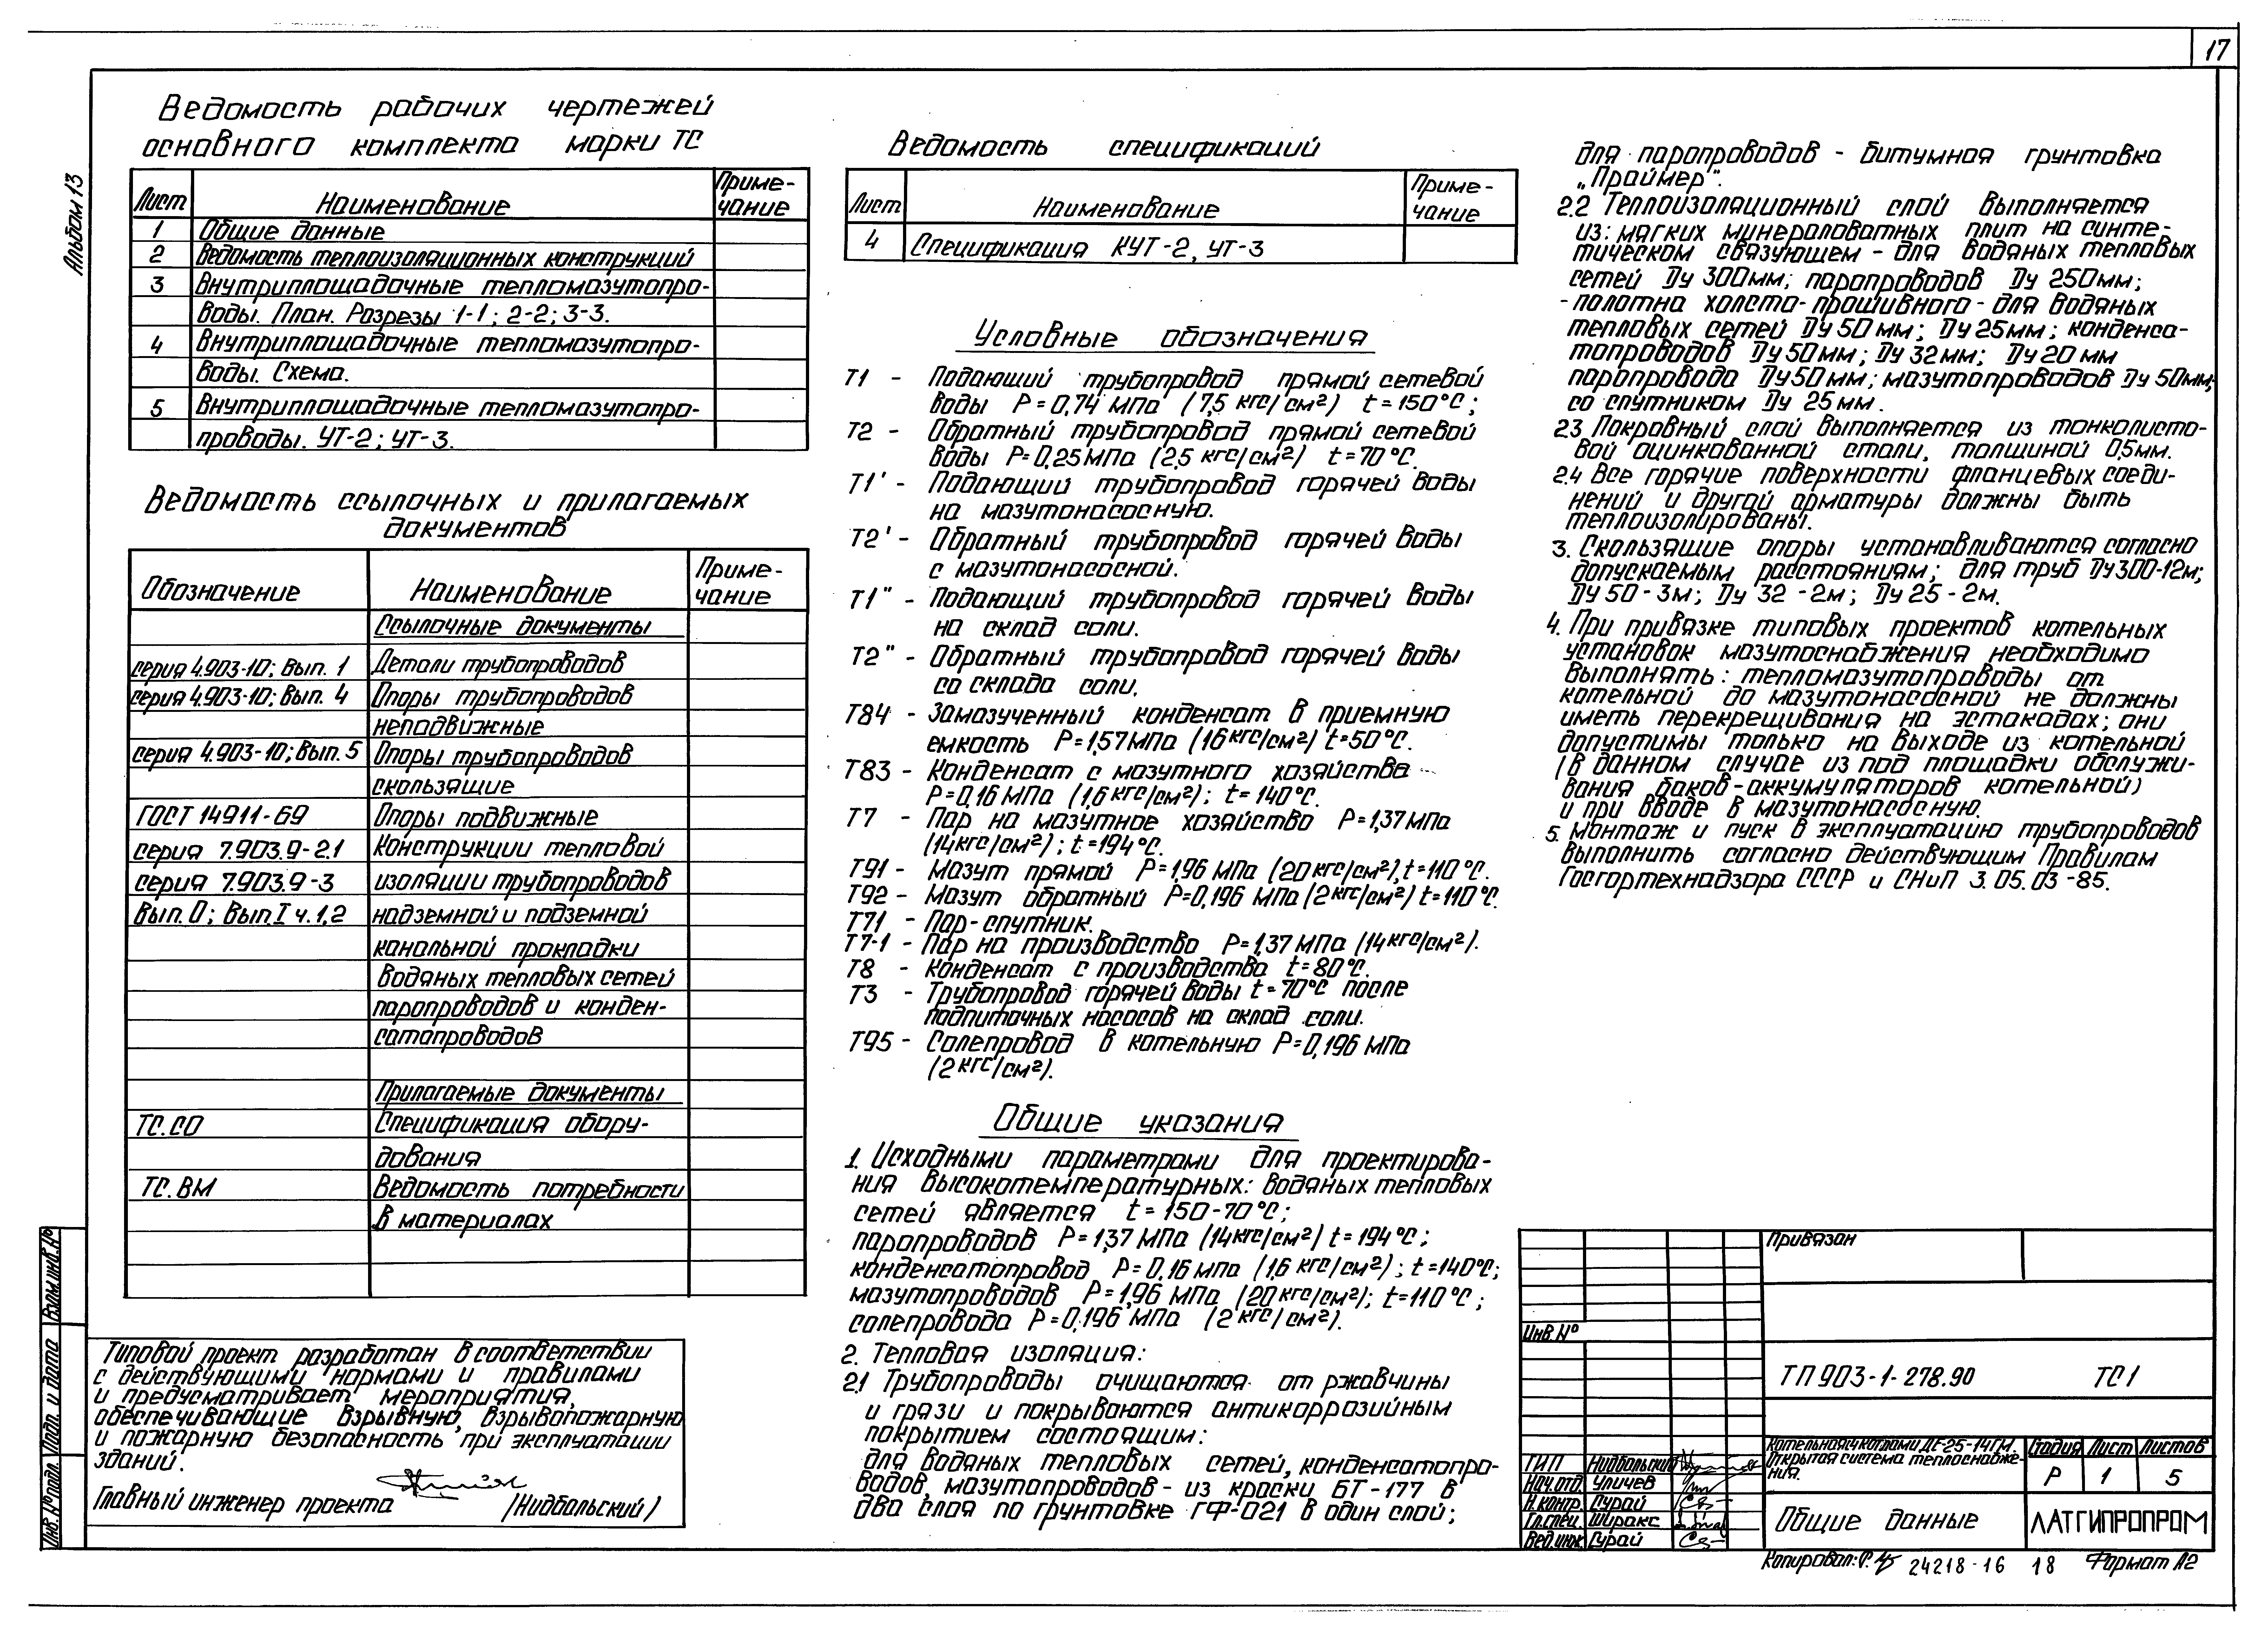 17
Альбом 13
Ведомость рабочих чертежей
основного комплекта марки ТС
Лист Наименование Приме-
чание
1 Общие данные
2 Ведомость теплоизоляционных конструкций
3 Внутриплощадочные тепломазутопро-
воды. План. Разрезы 1-1; 2-2; 3-3.
4 Внутриплощадочные тепломазутопро-
воды. Схема.
5 Внутриплощадочные тепломазутопро-
проводы. УТ-2; УТ-3.
Ведомость ссылочных и прилагаемых
документов
Обозначение Наименование Приме-
чание
Ссылочные документы
серия 4.903-10; Вып. 1 Детали трубопроводов
серия 4.903-10; Вып. 4 Опоры трубопроводов
неподвижные
серия 4.903-10; Вып. 5 Опоры трубопроводов
скользящие
ГОСТ 14911-69 Опоры подвижные
серия 7.903.9-2.1 Конструкции тепловой
серия 7.903.9-3 изоляции трубопроводов
Вып. 0; Вып. I ч. 1,2 надземной и подземной
канальной прокладки
водяных тепловых сетей
паропроводов и конден-
сатопроводов
Прилагаемые документы
ТС.СО Спецификация обору-
дования
ТС.ВМ Ведомость потребности
в материалах
Типовой проект разработан в соответствии
с действующими нормами и правилами
и предусматривает мероприятия,
обеспечивающие взрывную, взрывопожарную
и пожарную безопасность при эксплуатации
зданий.
Главный инженер проекта /Нидбальский/
Взам.инв.№
Подп. и дата
Инв.№подл.
Ведомость спецификаций
Лист Наименование Приме-
чание
4 Спецификация К УТ-2, УТ-3
Условные обозначения
Т1 - Подающий трубопровод прямой сетевой
воды Р=0,74 МПа (7,5 кгс/см²) t=150°С;
Т2 - Обратный трубопровод прямой сетевой
воды Р=0,25МПа (2,5 кгс/см²) t=70°С.
Т1' - Подающий трубопровод горячей воды
на мазутонасосную.
Т2' - Обратный трубопровод горячей воды
с мазутонасосной.
Т1" - Подающий трубопровод горячей воды
на склад соли.
Т2" - Обратный трубопровод горячей воды
со склада соли.
Т84 - Замазученный конденсат в приемную
емкость Р=1,57МПа (16кгс/см²) t=50°С.
Т83 - Конденсат с мазутного хозяйства
Р=0,16 МПа (1,6 кгс/см²); t=140°С.
Т7 - Пар на мазутное хозяйство Р=1,37МПа
(14кгс/см²); t=194°С.
Т91 - Мазут прямой Р=1,96 МПа (20кгс/см²), t=110°С.
Т92 - Мазут обратный Р=0,196 МПа (2кгс/см²) t=110°С.
Т71 - Пар-спутник.
Т7-1 - Пар на производство Р=1,37МПа (14кгс/см²).
Т8 - Конденсат с производства t=80°С.
Т3 - Трубопровод горячей воды t=70°С после
подпиточных насосов на склад соли.
Т95 - Солепровод в котельную Р=0,196 МПа
(2кгс/см²).
Общие указания
1. Исходными параметрами для проектирова-
ния высокотемпературных: водяных тепловых
сетей является t=150-70°С;
паропроводов Р=1,37 МПа (14кгс/см²) t=194°С;
конденсатопровод Р=0,16 МПа (1,6 кгс/см²); t=140°С;
мазутопроводов Р=1,96 МПа (20кгс/см²); t=110°С;
солепровода Р=0,196 МПа (2 кгс/см²).
2. Тепловая изоляция:
2.1 Трубопроводы очищаются от ржавчины
и грязи и покрываются антикоррозийным
покрытием состоящим:
для водяных тепловых сетей, конденсатопро-
водов, мазутопроводов - из краски БТ-177 в
два слоя по грунтовке ГФ-021 в один слой;
для паропроводов - битумная грунтовка
„Праймер".
2.2 Теплоизоляционный слой выполняется
из: мягких минераловатных плит на синте-
тическом связующем - для водяных тепловых
сетей Ду 300мм; паропроводов Ду 250мм;
- полотна холсто-прошивного - для водяных
тепловых сетей Ду 50 мм; Ду 25мм; конденса-
топроводов Ду 50мм; Ду 32мм; Ду 20 мм
паропровода Ду50мм; мазутопроводов Ду 50мм;
со спутником Ду 25мм.
2.3 Покровный слой выполняется из тонколисто-
вой оцинкованной стали, толщиной 0,5мм.
2.4 Все горячие поверхности фланцевых соеди-
нений и другой арматуры должны быть
теплоизолированы.
3. Скользящие опоры устанавливаются согласно
допускаемым расстояниям; для труб Ду300-12м;
Ду 50-3м; Ду 32-2м; Ду 25-2м.
4. При привязке типовых проектов котельных
установок мазутоснабжения необходимо
выполнять: тепломазутопроводы от
котельной до мазутонасосной не должны
иметь перекрещивания на эстакадах; они
допустимы только на выходе из котельной
(в данном случае из под площадки обслужи-
вания баков-аккумуляторов котельной)
и при вводе в мазутонасосную.
5. Монтаж и пуск в эксплуатацию трубопроводов
выполнить согласно действующим Правилам
Госгортехнадзора СССР и СНиП 3.05.03-85.
Привязан
Инв.№
ТП 903-1-278.90 ТС1
Котельная с 4 котлами ДЕ-25-14ГМ.
Открытая система теплоснабже-
ния.
Стадия Лист Листов
Р 1 5
ГИП Нидбальский
Нач.отд. Уличев
Н.контр. Гурай
Гл.спец. Ширакс
Вед.инж. Гурай
Общие данные
ЛАТГИПРОПРОМ
Копировал: 24218-16 18 Формат А2